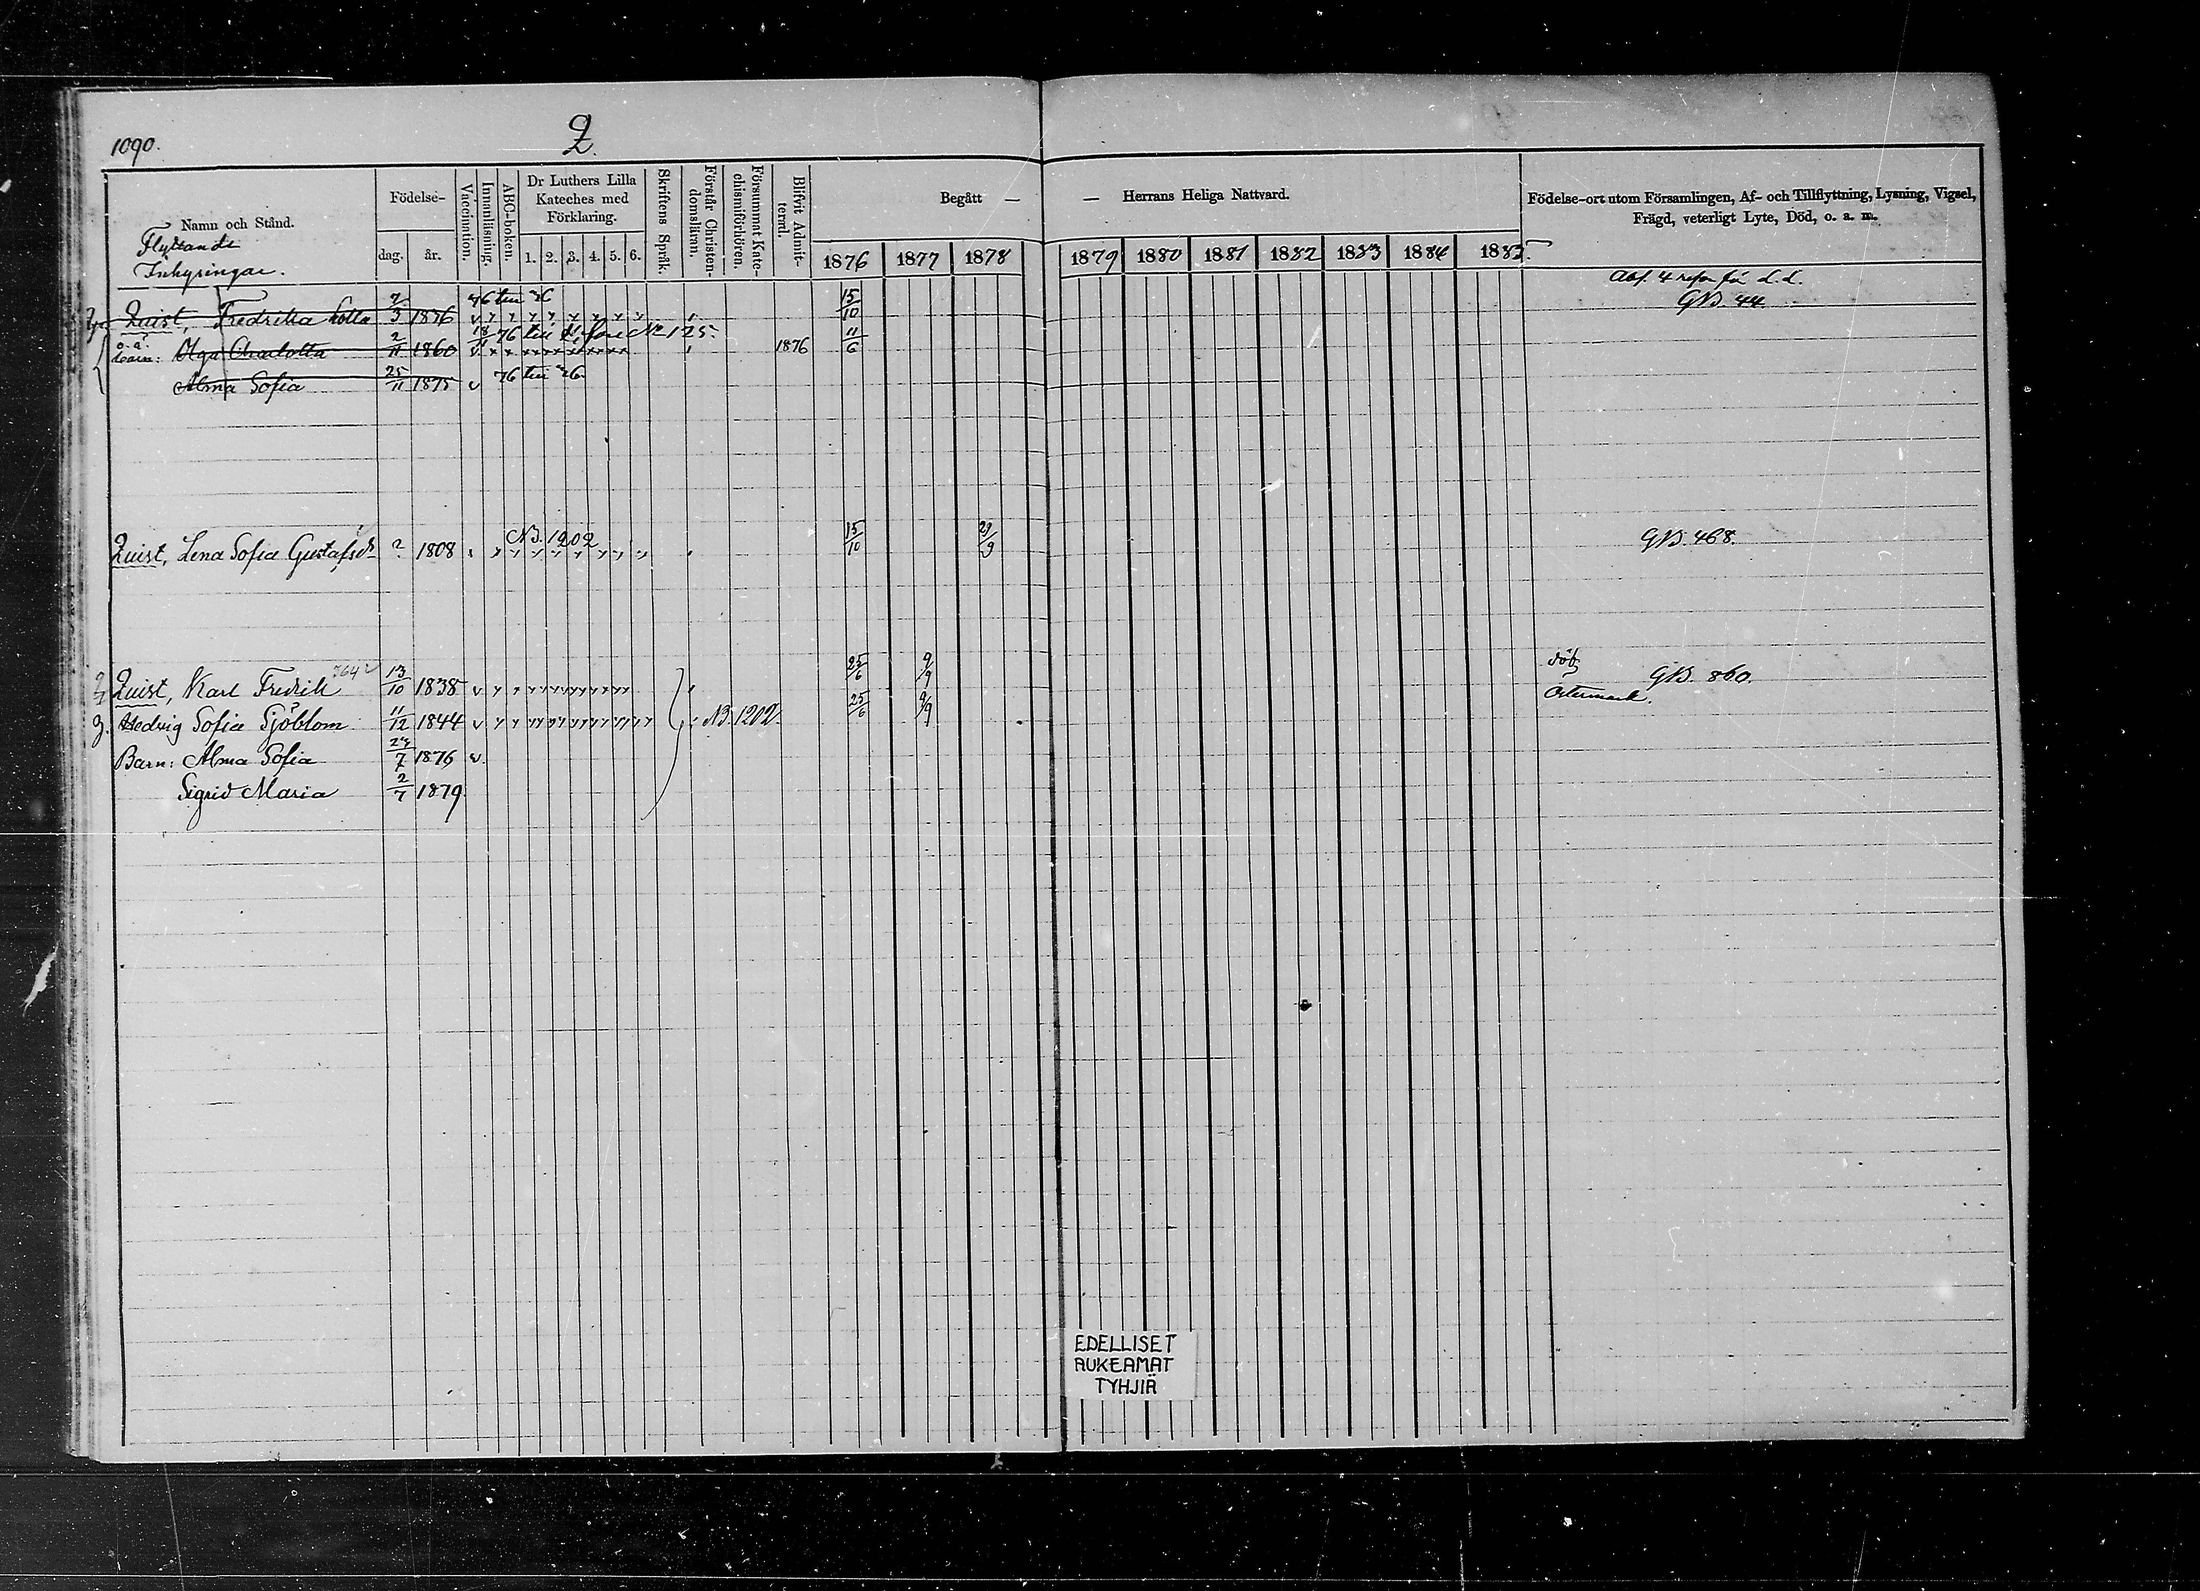 1090.
Q.
Namn och Stånd.
Flyttande
Inhysingar.
Födelse-
dag.
år.
Vaccination.
Innanläsning.
ABC-boken.
Dr Luthers Lilla Kateches med Förklaring.
1. 2. 3. 4. 5. 6.
Skriftens Språk.
Förstår Christendomsläran.
Försummat Katechismiförhören.
Blifvit Admitterad.
Begått —
— Herrans Heliga Nattvard.
1876 1877 1878
1879 1880 1881 1882 1883 1884 1885.
Födelse-ort utom Församlingen, Af- och Tillflyttning, Lysning, Vigsel,
Frägd, veterligt Lyte, Död, o. a. m.
GB. 44
Quist, Fredrika Lotta 7/3 1836 15/10
o. ä. barn: Olga Charlotta 2/11 1860 1876 11/6
Alma Sofia 25/11 1875
Quist, Lena Sofia Gustafsdr ? 1808 NB. 1202 15/10 29/9 GB. 468.
Quist, Karl Fredrik 13/10 1838 25/6 9/9 GB. 860.
Hedvig Sofia Sjöblom 11/12 1844 NB. 1202 25/6 9/9 Östermark.
Barn: Alma Sofia 27/7 1876
Sigrid Maria 2/7 1879.
EDELLISET
AUKEAMAT
TYHJIÄ